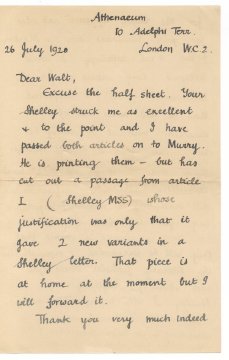 Athenaeum
10 Adelphi Terr.
26 July 1920 London W.C.2.
Dear Walt,
Excuse the half sheet. Your
Shelley struck me as excellent
& to the point and I have
passed both articles on to Murry.
He is printing them – but has
cut out a passage from article
I (Shelley MSS) whose
justification was only that it
gave 2 new variants in a
Shelley letter. That piece is
at home at the moment but I
will forward it.
Thank you very much indeed